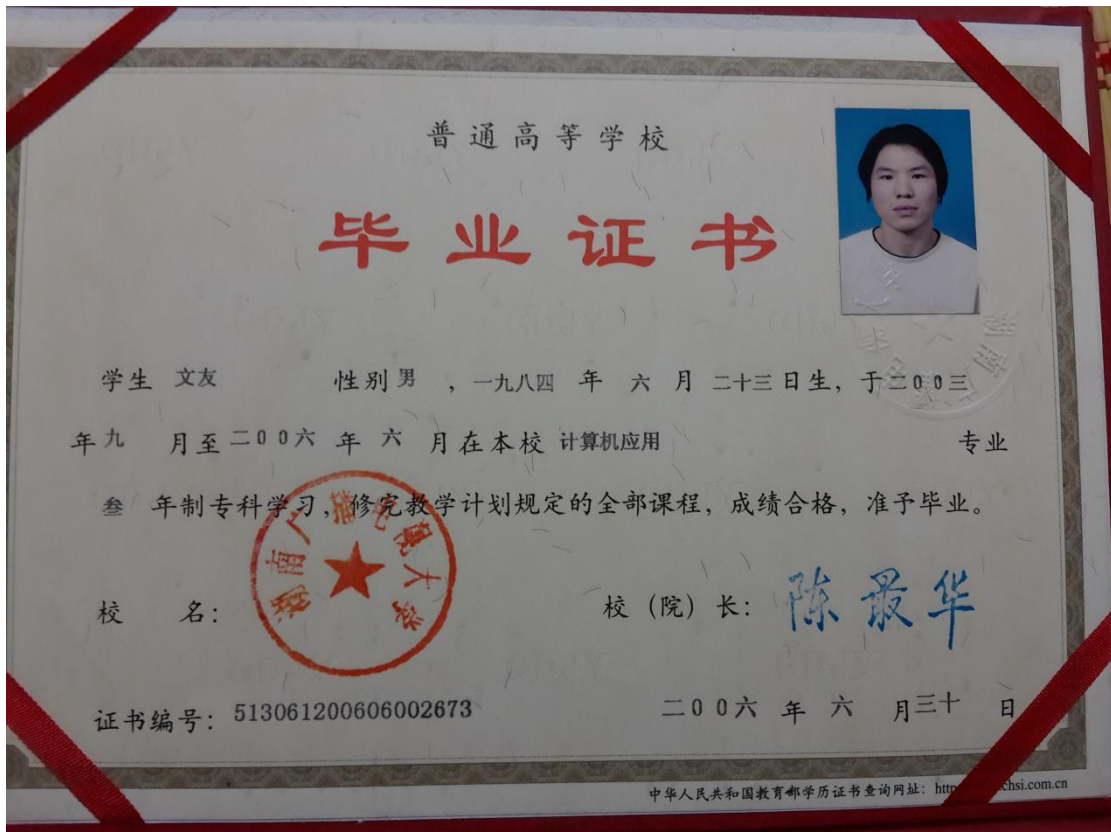 普通高等学校
毕业证书
学生 文友 性别 男 ，一九八四 年 六 月 二十三 日生，于二00三
年 九 月至 二00六 年 六 月在本校 计算机应用 专业
叁 年制专科学习，修完教学计划规定的全部课程，成绩合格，准予毕业。
湖南广播电视大学
校 名： 校（院）长： 陈最华
证书编号： 513061200606002673 二00六 年 六 月 三十 日
中华人民共和国教育部学历证书查询网址： http chsi.com.cn